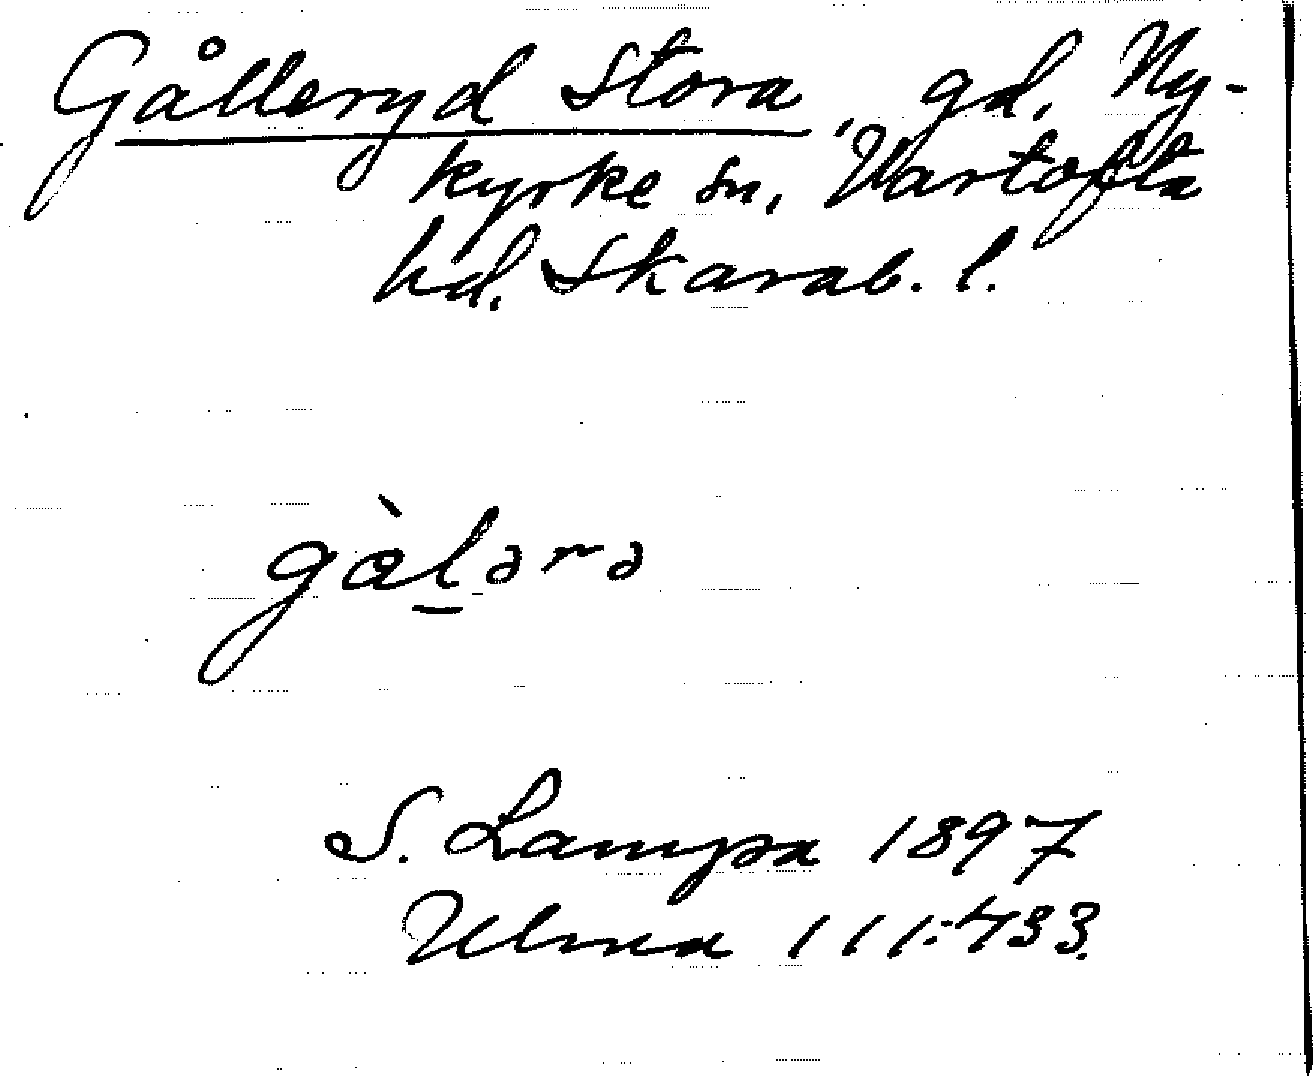 Gålleryd Stora, gd, Ny-
kyrke sn, Vartofta
hd. Skarab. l.
gàl̲ərə
S. Lampa 1897
Ulma 111:433.